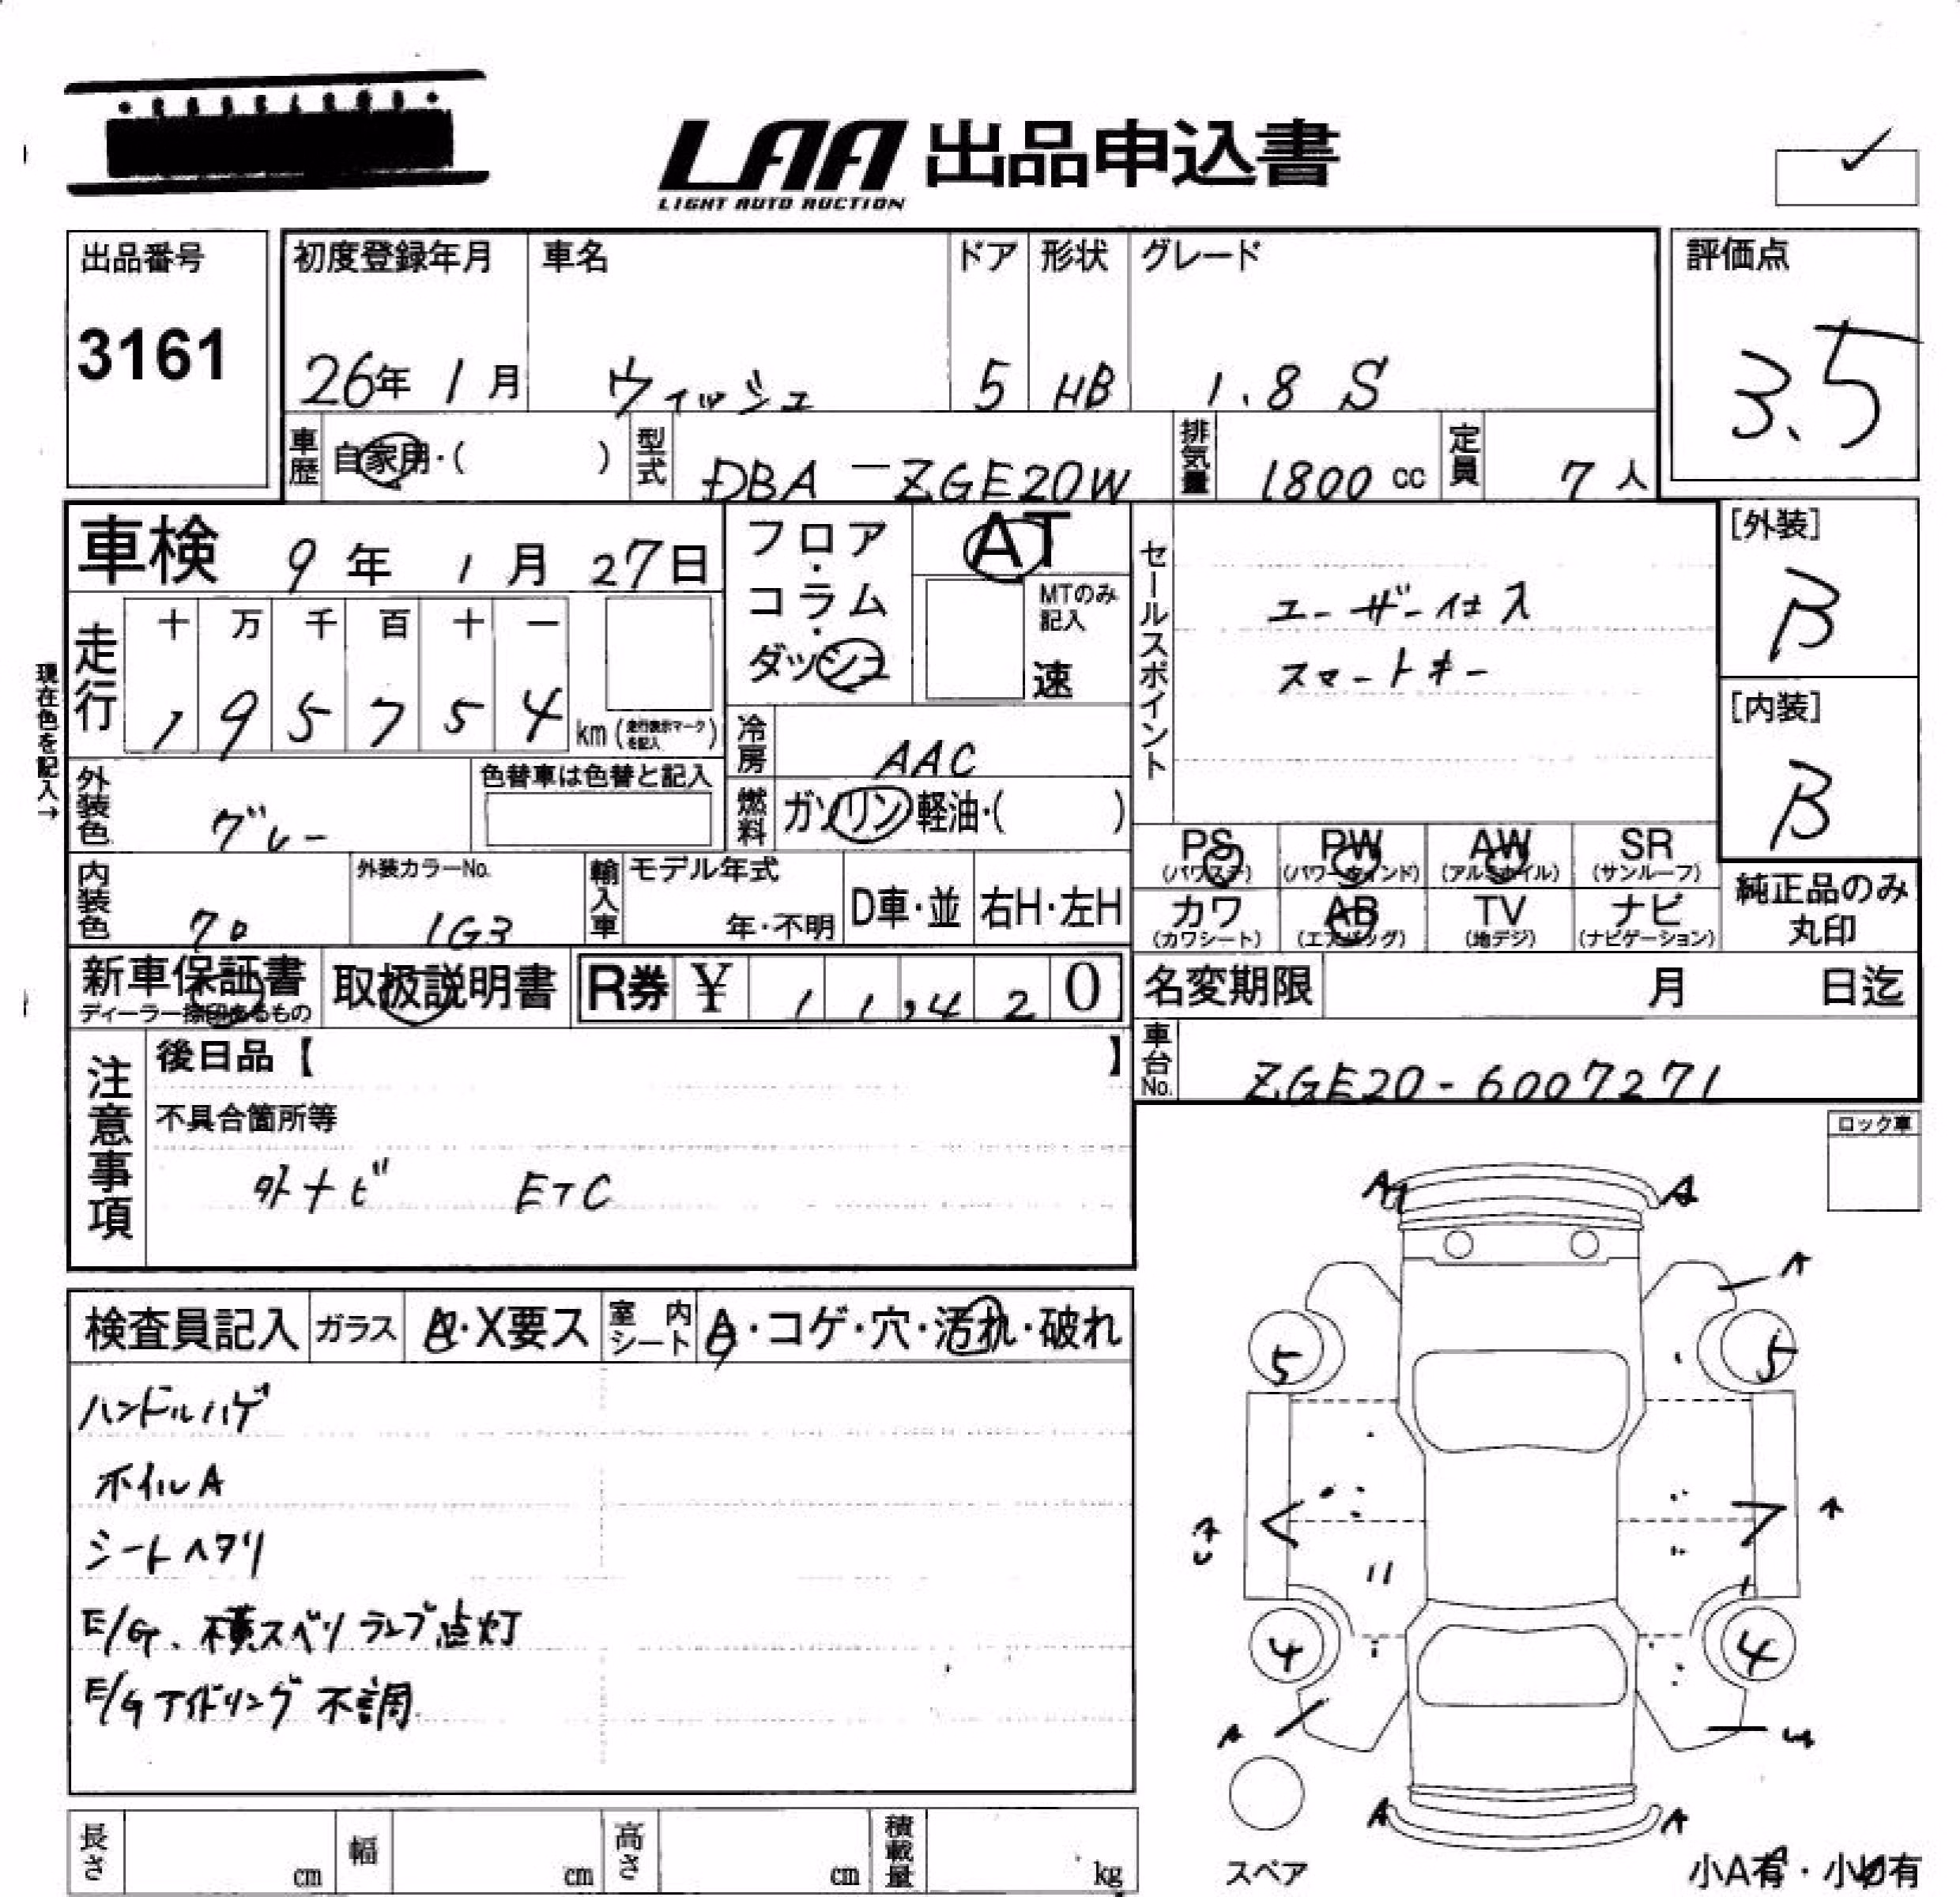 LAA 出品申込書
LIGHT AUTO AUCTION
✓
出品番号
3161
初度登録年月 車名 ドア 形状 グレード
26年 1月 ウィッシュ 5 HB 1.8 S
評価点
3.5
車歴 自家用・( ) 型式 DBA-ZGE20W 排気量 1800 cc 定員 7人
車検 9年 1月 27日
フロア・コラム・ダッシュ
AT
MTのみ記入
速
セールスポイント
ユーザー仕入
スマートキー
[外装]
B
[内装]
B
現在色を記入→
走行 十 万 千 百 十 一
1 9 5 7 5 4 km (走行表示マークを記入)
冷房 AAC
燃料 ガソリン・軽油・( )
外装色 グレー 色替車は色替と記入
内装色 クロ 外装カラーNo. 1G3 輸入車 モデル年式 年・不明 D車・並 右H・左H
PS (パワステ) PW (パワーウインド) AW (アルミホイル) SR (サンルーフ)
カワ (カワシート) AB (エアバッグ) TV (地デジ) ナビ (ナビゲーション)
純正品のみ丸印
新車保証書 ディーラー捺印あるもの 取扱説明書 R券 ¥ 1 1,4 2 0
名変期限 月 日迄
車台No. ZGE20-6007271
注意事項
後日品【 】
不具合箇所等
外ナビ ETC
ロック車
検査員記入 ガラス A・X要ス 室内シート A・コゲ・穴・汚れ・破れ
ハンドルハゲ
ホイルA
シートヘタリ
E/G、横スベリランプ点灯
E/Gアイドリング不調
A A
A
5 5
A
4 4
A
A A
スペア
小A有・小U有
長さ cm 幅 cm 高さ cm 積載量 kg